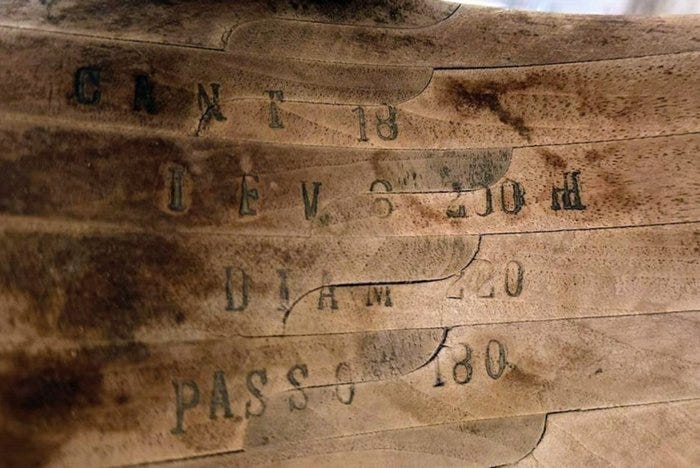 CANT 18
I F V 6 200
DIAM 220
PASSO 180